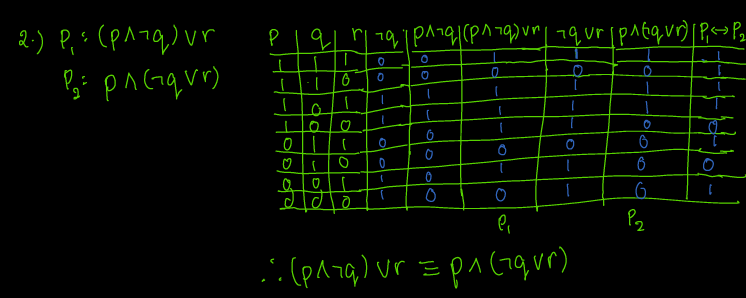 2.) P₁: (p∧¬q)∨r
P₂: p∧(¬q∨r)
p q r ¬q p∧¬q (p∧¬q)∨r ¬q∨r p∧(¬q∨r) P₁↔P₂
1 1 1 0 0 1 1 1 1
1 1 0 0 0 0 0 0 1
1 0 1 1 1 1 1 1 1
1 0 0 1 1 1 1 1 1
0 1 1 0 0 1 1 0 0
0 1 0 0 0 0 0 0 1
0 0 1 1 0 1 1 0 0
0 0 0 1 0 0 1 0 1
P₁ P₂
∴ (p∧¬q)∨r ≡ p∧(¬q∨r)